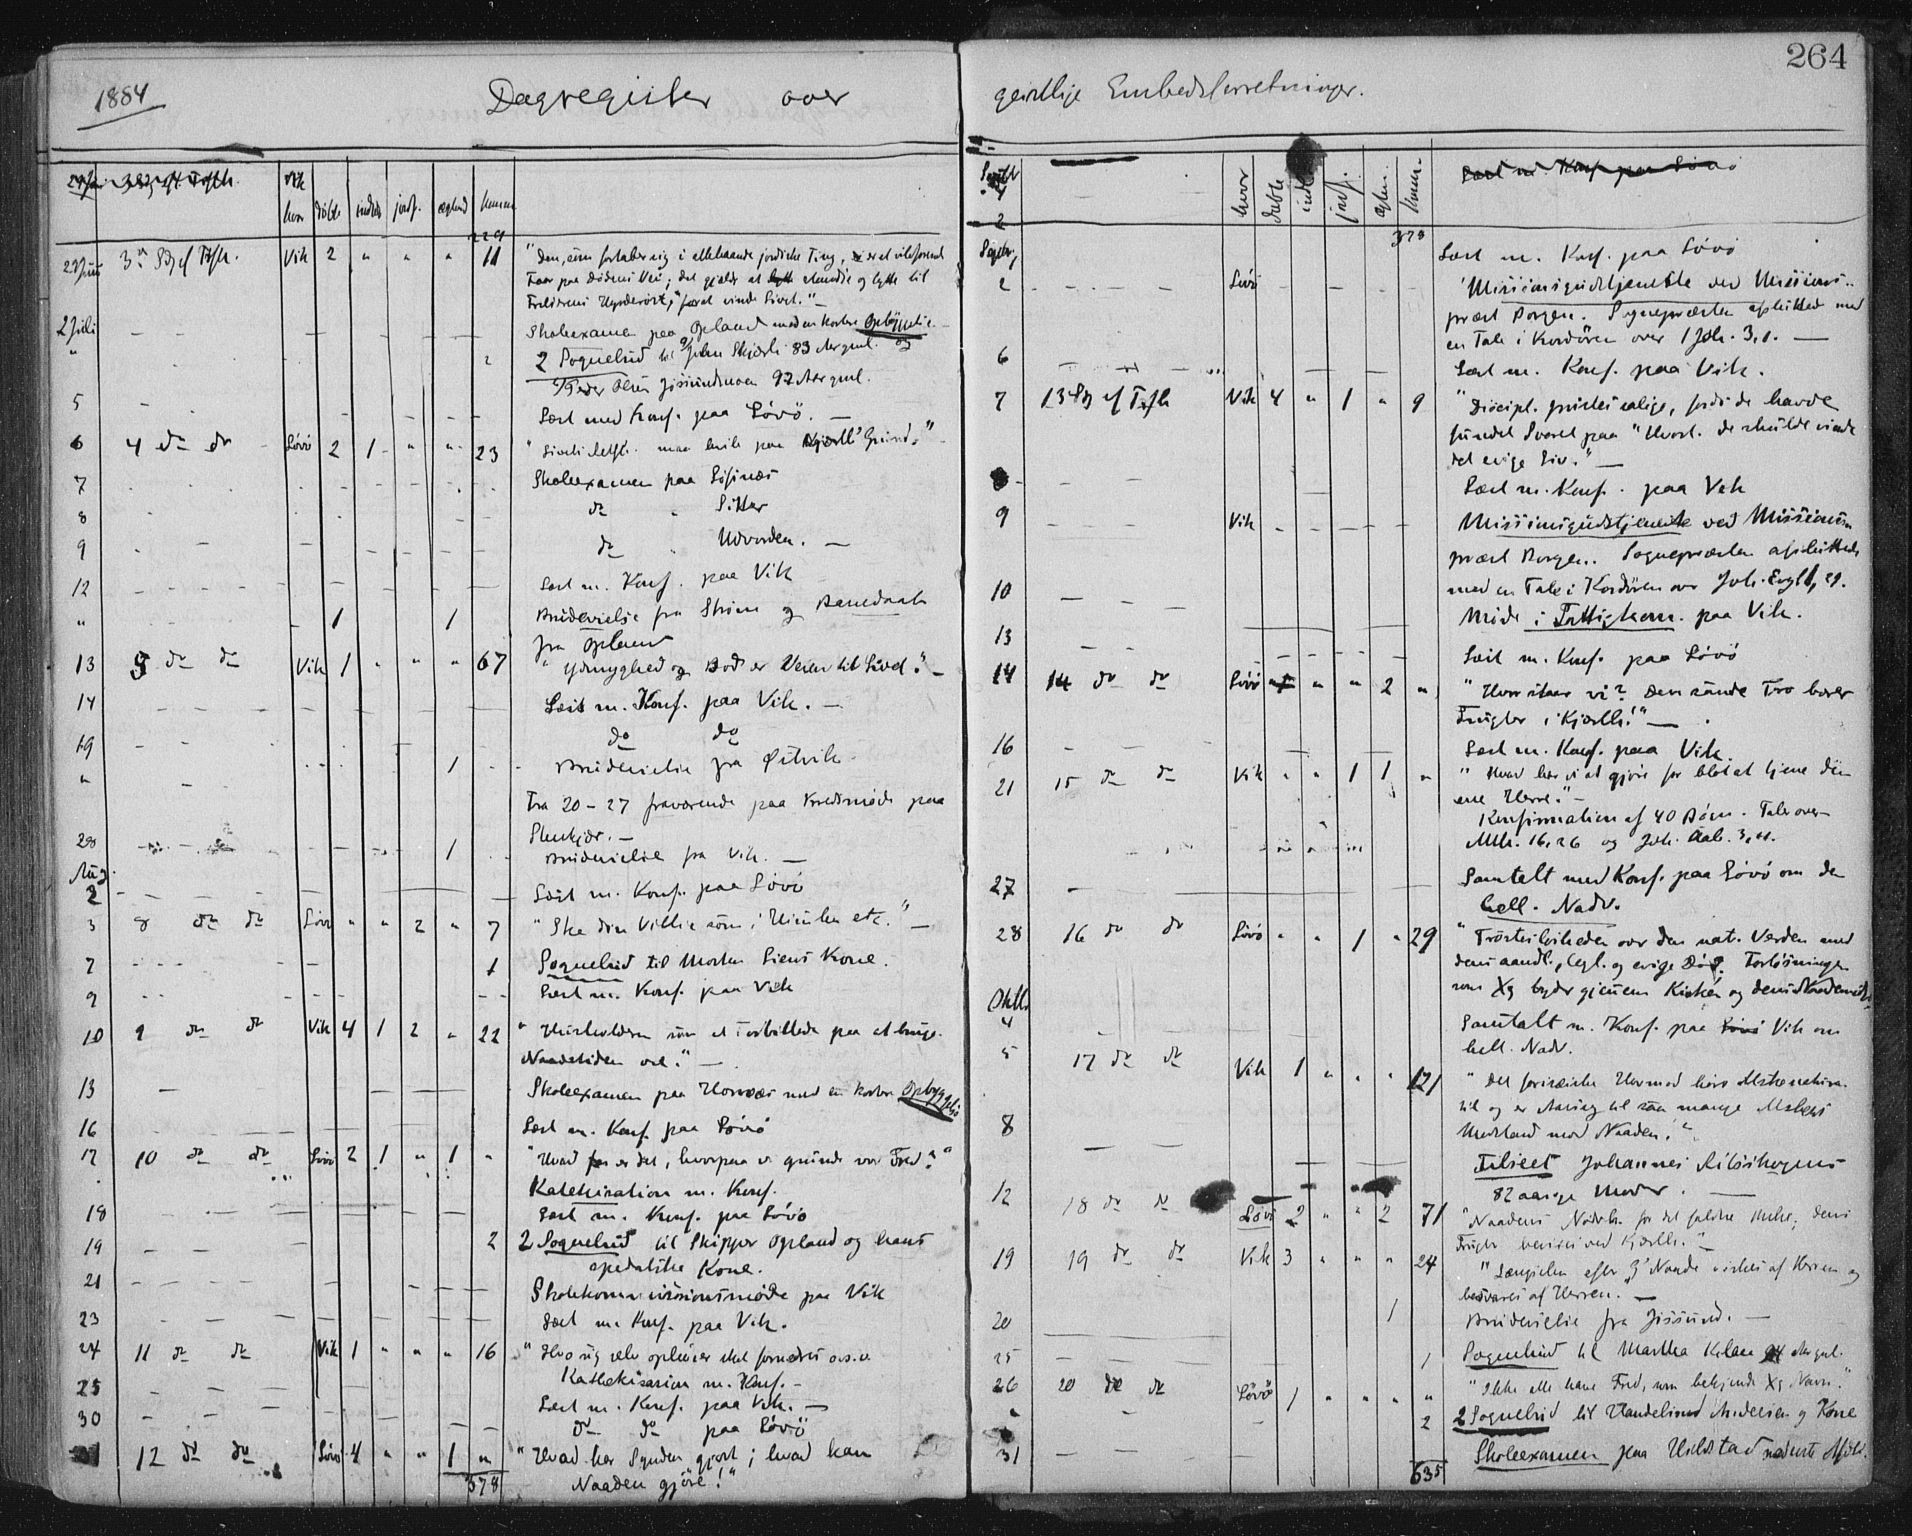 264
1884
Dagregister over geistlige Embedsforretninger.
hvor døbte indl jordf. ægtev. Komm
229
29 Juni 3die S. ef Trefh. Vik 2 " " " 11 "Den, som fortaber sig i allehaande jordiske Ting, er et vildfarende
Faar paa Dødens Vei; det gjælder at standse og lytte til
Frelserens Hyrderøst, for at vinde Livet." —
2 Juli Skoleexamen paa Opland med en kort Opbyggelse
" 2 2 Sognebud til John Skjærli 83 Aar gml. og
Peder Olsen Jøssundmoen 97 Aar gml.
5 Læst med Konf. paa Løvø. —
6 4 do do Løvø 2 1 " " 23 "Livets maa hvile paa Kjærlh. Grund."
7 Skoleexamen paa
8 do " Sitter
9 do " Utvorden. —
12 Læst m. Konf. paa Vik
" 1 1 Brudevielse fra Strøm og Barnedaab
fra Opland
13 5 do do Vik 1 " " " 67 "Ydmyghed og Bod er Veien til Livet." —
14 Læst m. Konf. paa Vik. —
19 do do
" 1 Brudevielse fra Østvik
Fra 20 – 27 fraværende paa Kredsmøde paa
Stenkjær. —
28 1 Brudevielse fra Vik. —
Aug.
2 Læst m. Konf. paa Løvø
3 8 do do Løvø " " 2 " 7 "Ske din Villie som i Himlen etc." —
7 1 Sognebud til Morten Siens Kone.
9 Læst m. Konf. paa Vik
10 9 do do Vik 4 1 2 " 22 "Husholderen som et Forbillede paa at bruge
Naadetiden vel." —
13 Skoleexamen paa Hornæs med en kort Opbyggelse
16 Læst m. Konf. paa Løvø
17 10 do do Løvø 2 1 " 1 " "Hvad er det, hvorpaa vi grunde vor Fred?"
Katekisation m. Konf.
18 Læst m. Konf. paa Løvø
19 2 2 Sognebud til Skipper Opland og hans
spedalske Kone.
21 Skolekommissionsmøde paa Vik
23 Læst m. Konf. paa Vik.
24 11 do do Vik 1 " " " 16 "Hvo sig selv ophøier skal fornedres o.s.v.
Kathekisation m. Konf. –
25 Læst m. Konf. paa Vik. —
30 do do paa Løvø
31 12 do do Løvø 4 " " 1 " "Hvad har Synden gjort; hvad kan
Naaden gjøre!"
378
hvor døbte indl jordf. ægtv. Komm.
378
Septbr. Læst m. Konf. paa Løvø
2 Løvø Missionsgudstjeneste ved Missions-
præst Borgen. Sognepræsten afsluttede med
en Tale i Kordøren over 1 Joh. 3,1. —
6 Læst m. Konf. paa Vik.
7 13 S. ef Trefh Vik 4 " 1 " 9 "Discipl. prises salige, fordi de havde
fundet Svaret paa "Hvorl. de skulde vinde
det evige Liv." —
8 Læst m. Konf. paa Vik
9 Vik Missionsgudstjeneste ved Missions-
præst Borgen. Sognepræsten afsluttede
med en Tale i Kordøren over Joh. Evgl. 1, 29.
10 Møde i Fattigkom. paa Vik.
13 Læst m. Konf. paa Løvø
14 14 do do Løvø " " 2 " "Hvor staar vi? Den sande Tro bærer
Frugter i Kjærlh.!" —
16 Læst m. Konf. paa Vik.
21 15 do do Vik " " 1 1 " "Hvad har vi at gjøre for blot at tjene den
ene Herre." —
Konfirmation af 40 Børn. Tale over
Mtth. 16,26 og Joh. Aab. 3,11.
27 Samtalt med Konf. paa Løvø om den
hell. Nadv.
28 16 do do Løvø " " 1 " 29 "Trøsteløsheden over den nat. Verden med
dens aandl., legl. og evige Død. Forløsningen
som Xs byder gjennem Kirken og dens Naademidl.
Oktbr.
4 Samtalt m. Konf. paa Vik om
hell. Nadv.
5 17 do do Vik 1 " " " 121 "Det farisæiske Hovmod
til og er Aarsag til saa mange Mskers
Modstand mod Naaden."
8 Tilseet Johannes
82 aarige Moder. —
12 18 do do Løvø 2 " " 2 71 "Naadens Nødvh. for det faldne Mske; dens
Frugter bevises ved Kjærlh." —
19 19 do do Vik 3 " " " 24 "Længselen efter Naade virkes af Herren og
besvares af Herren. —
20 1 Brudevielse fra Jøssund. —
25 1 Sognebud til Martha 94 Aar gml.
26 20 do do Løvø 1 " " " " "Ikke alle have Fred, som bekjende Xs Navn."
" 2 2 Sognebud til Handelsmd Andersen og Kone
31 Skoleexamen paa Utvstad
635